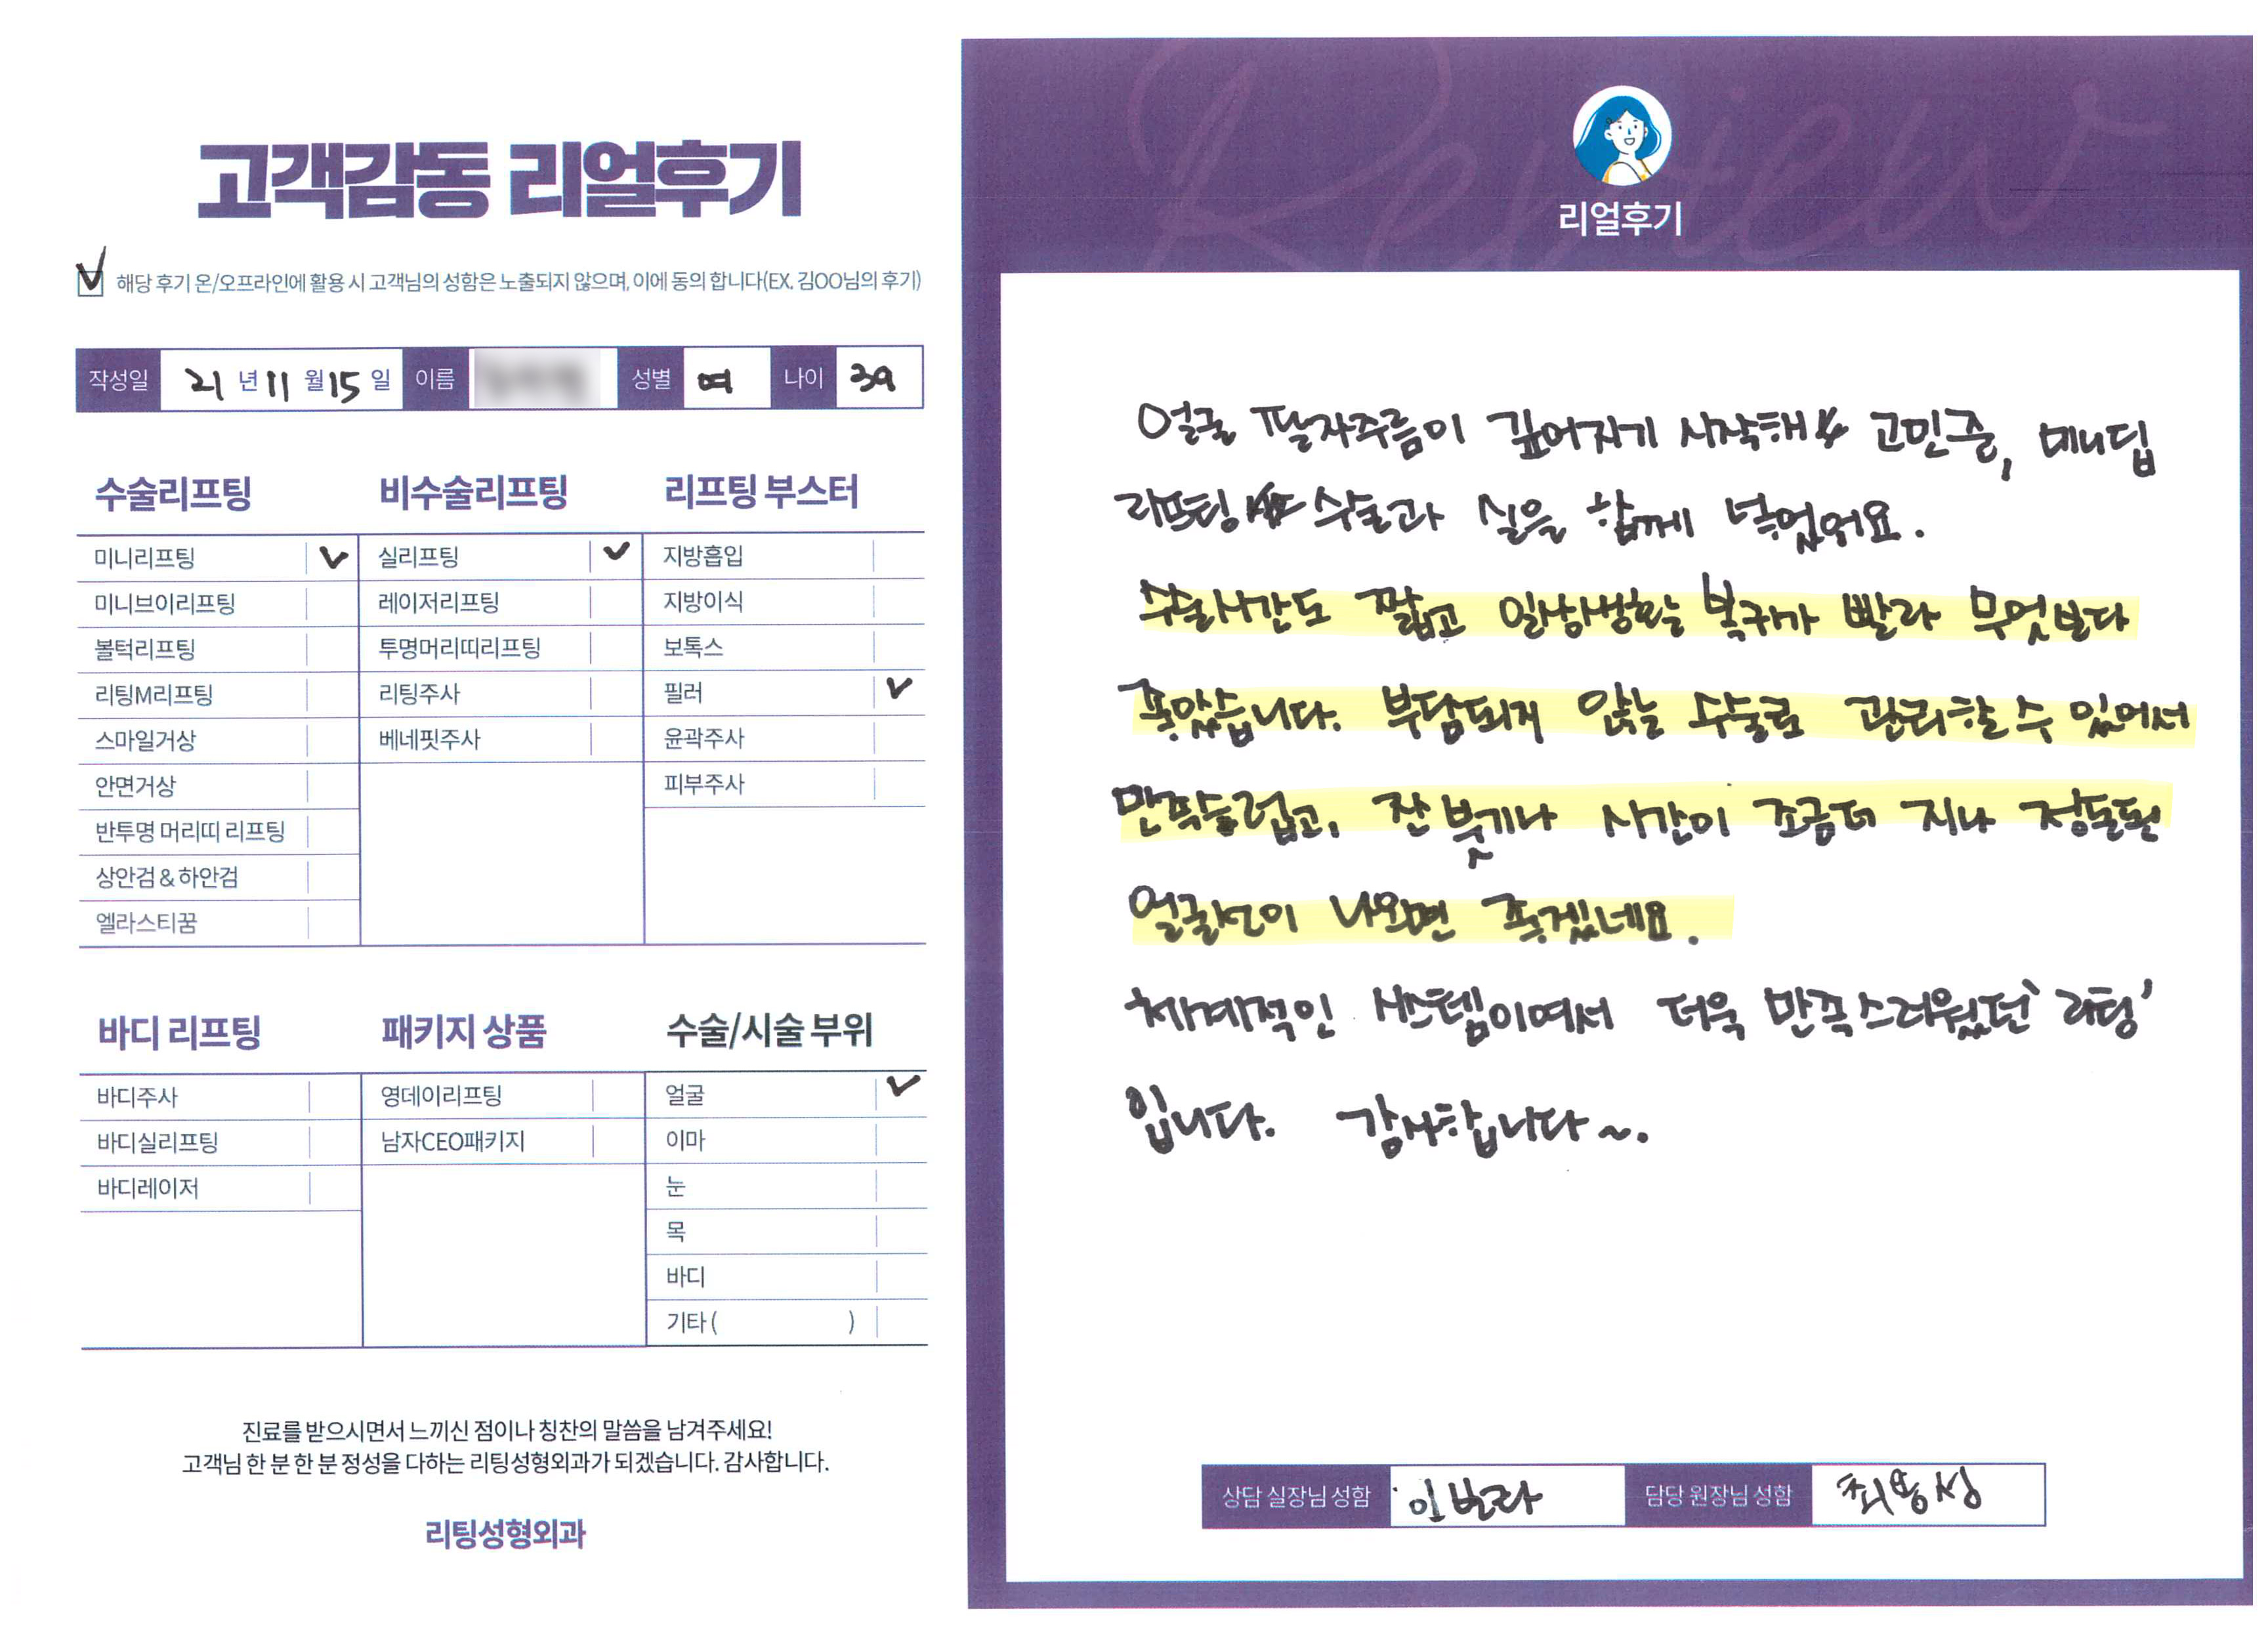 고객감동 리얼후기
해당 후기 온/오프라인에 활용 시 고객님의 성함은 노출되지 않으며, 이에 동의 합니다(EX. 김OO님의 후기)
작성일 21 년 11 월 15 일 이름 성별 여 나이 39
수술리프팅
미니리프팅
미니브이리프팅
볼턱리프팅
리팅M리프팅
스마일거상
안면거상
반투명 머리띠 리프팅
상안검 & 하안검
엘라스티꿈
비수술리프팅
실리프팅
레이저리프팅
투명머리띠리프팅
리팅주사
베네핏주사
리프팅 부스터
지방흡입
지방이식
보톡스
필러
윤곽주사
피부주사
바디 리프팅
바디주사
바디실리프팅
바디레이저
패키지 상품
영데이리프팅
남자CEO패키지
수술/시술 부위
얼굴
이마
눈
목
바디
기타 ( )
진료를 받으시면서 느끼신 점이나 칭찬의 말씀을 남겨주세요!
고객님 한 분 한 분 정성을 다하는 리팅성형외과가 되겠습니다. 감사합니다.
리팅성형외과
Review
리얼후기
얼굴 팔자주름이 깊어지기 시작해 고민중, 미니딥
리프팅 수술과 실을 함께 넣었어요.
수술시간도 짧고 일상생활 복귀가 빨라 무엇보다
좋았습니다. 부담되지 않는 수술로 관리할 수 있어서
만족스럽고, 잔 붓기나 시간이 조금더 지나 정돈된
얼굴선이 나오면 좋겠네요.
체계적인 시스템이여서 더욱 만족스러웠던 '리팅'
입니다. 감사합니다~.
상담 실장님 성함 이보라 담당 원장님 성함